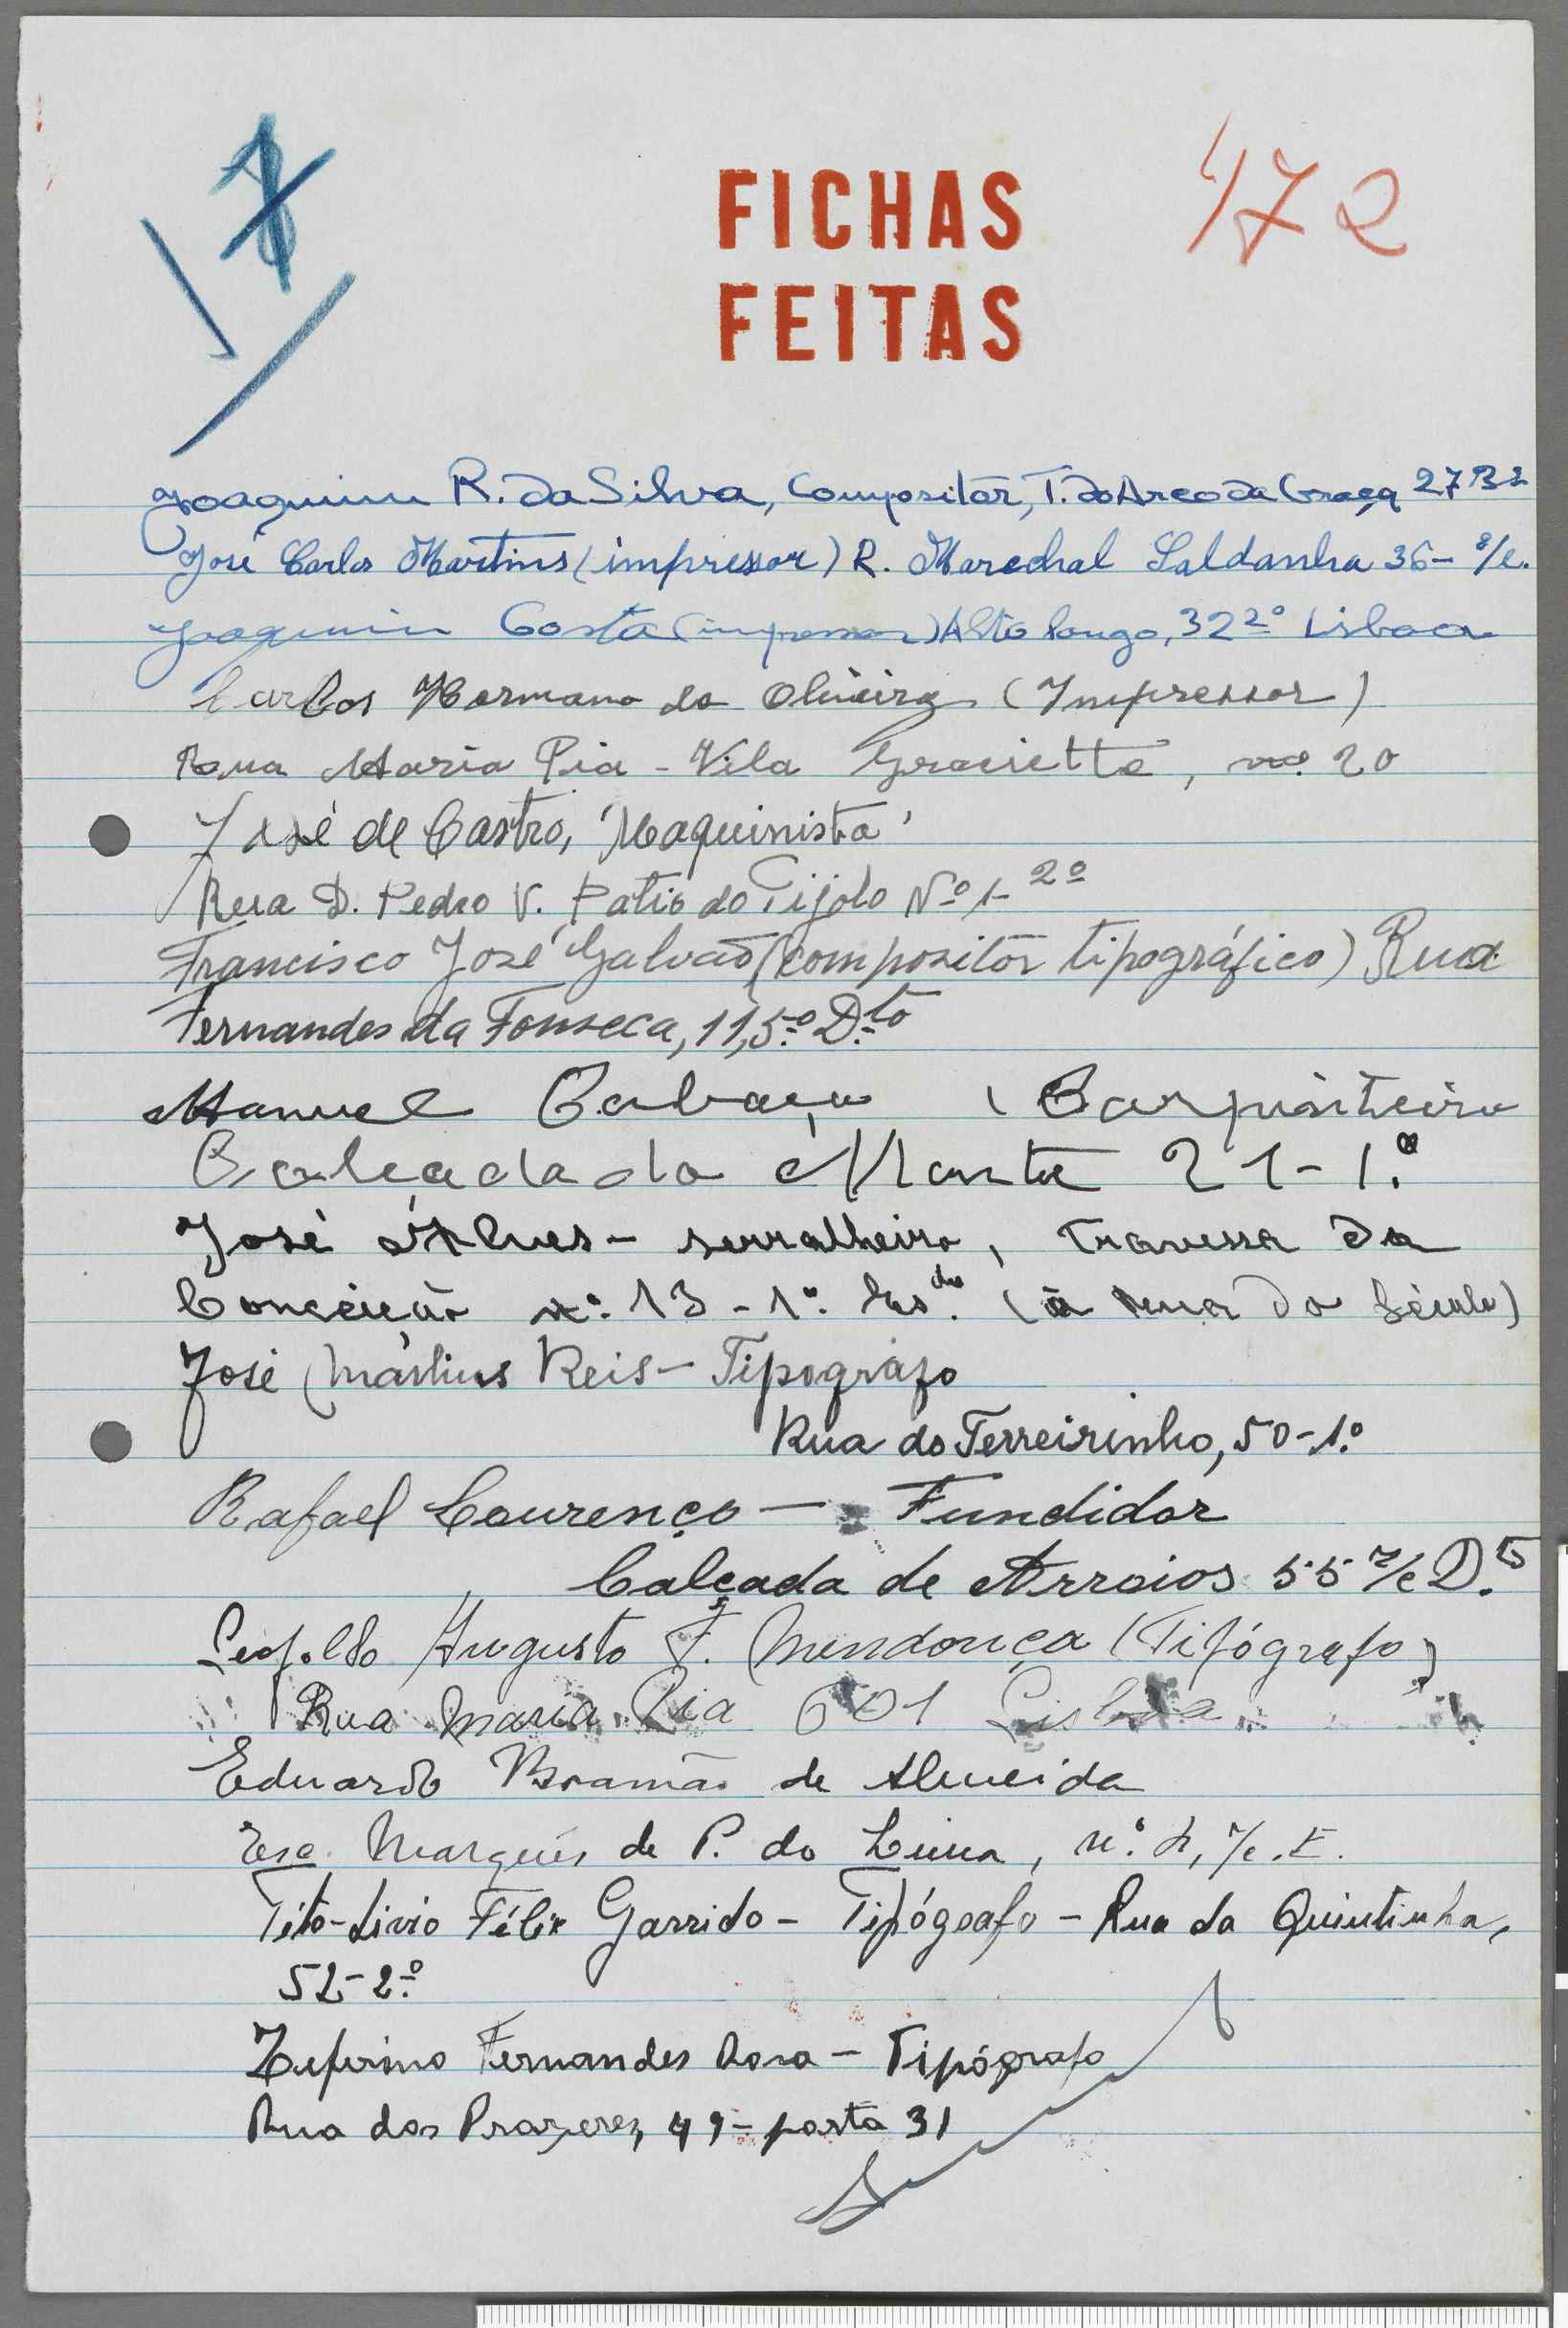 FICHAS
FEITAS
472
Joaquim R. da Silva, Compositor, T. do Arco da Graça 27
José Carlos Martins (impressor) R. Marechal Saldanha 36-
Joaquim Costa (impressor) Alto Longo, 32 2º Lisboa
Carlos Hermano de Oliveira (Impressor)
Rua Maria Pia - Vila Graciette, nº 20
José de Castro, 'Maquinista'
Rua D. Pedro V. Patio do Tijolo Nº 1- 2º
Francisco José Galvão (compositor tipográfico) Rua
Fernandes da Fonseca, 11, 5.º D.to
Manuel Cabaço (Carpinteiro
Calçada do Monte 21-1.º
José Alves - serralheiro, Travessa da
Conceição nº. 13 - 1º. Esdo. (à Rua do Século)
José Martins Reis - Tipografo
Rua do Terreirinho, 50-1.º
Rafael Lourenço - Fundidor
Calçada de Arroios 55 r/c D.to
Leopoldo Augusto F. Mendonça (Tipógrafo)
Rua Maria Pia 601 Lisboa
Eduardo Bramão de Almeida
Esc. Marquês de P. do Lima, n.º r/c. E.
Tito-Livio Félix Garrido - Tipógrafo - Rua da Quintinha,
52-2.º
Zeferino Fernandes Rosa - Tipógrafo
Rua dos Prazeres, 49 - porta 31